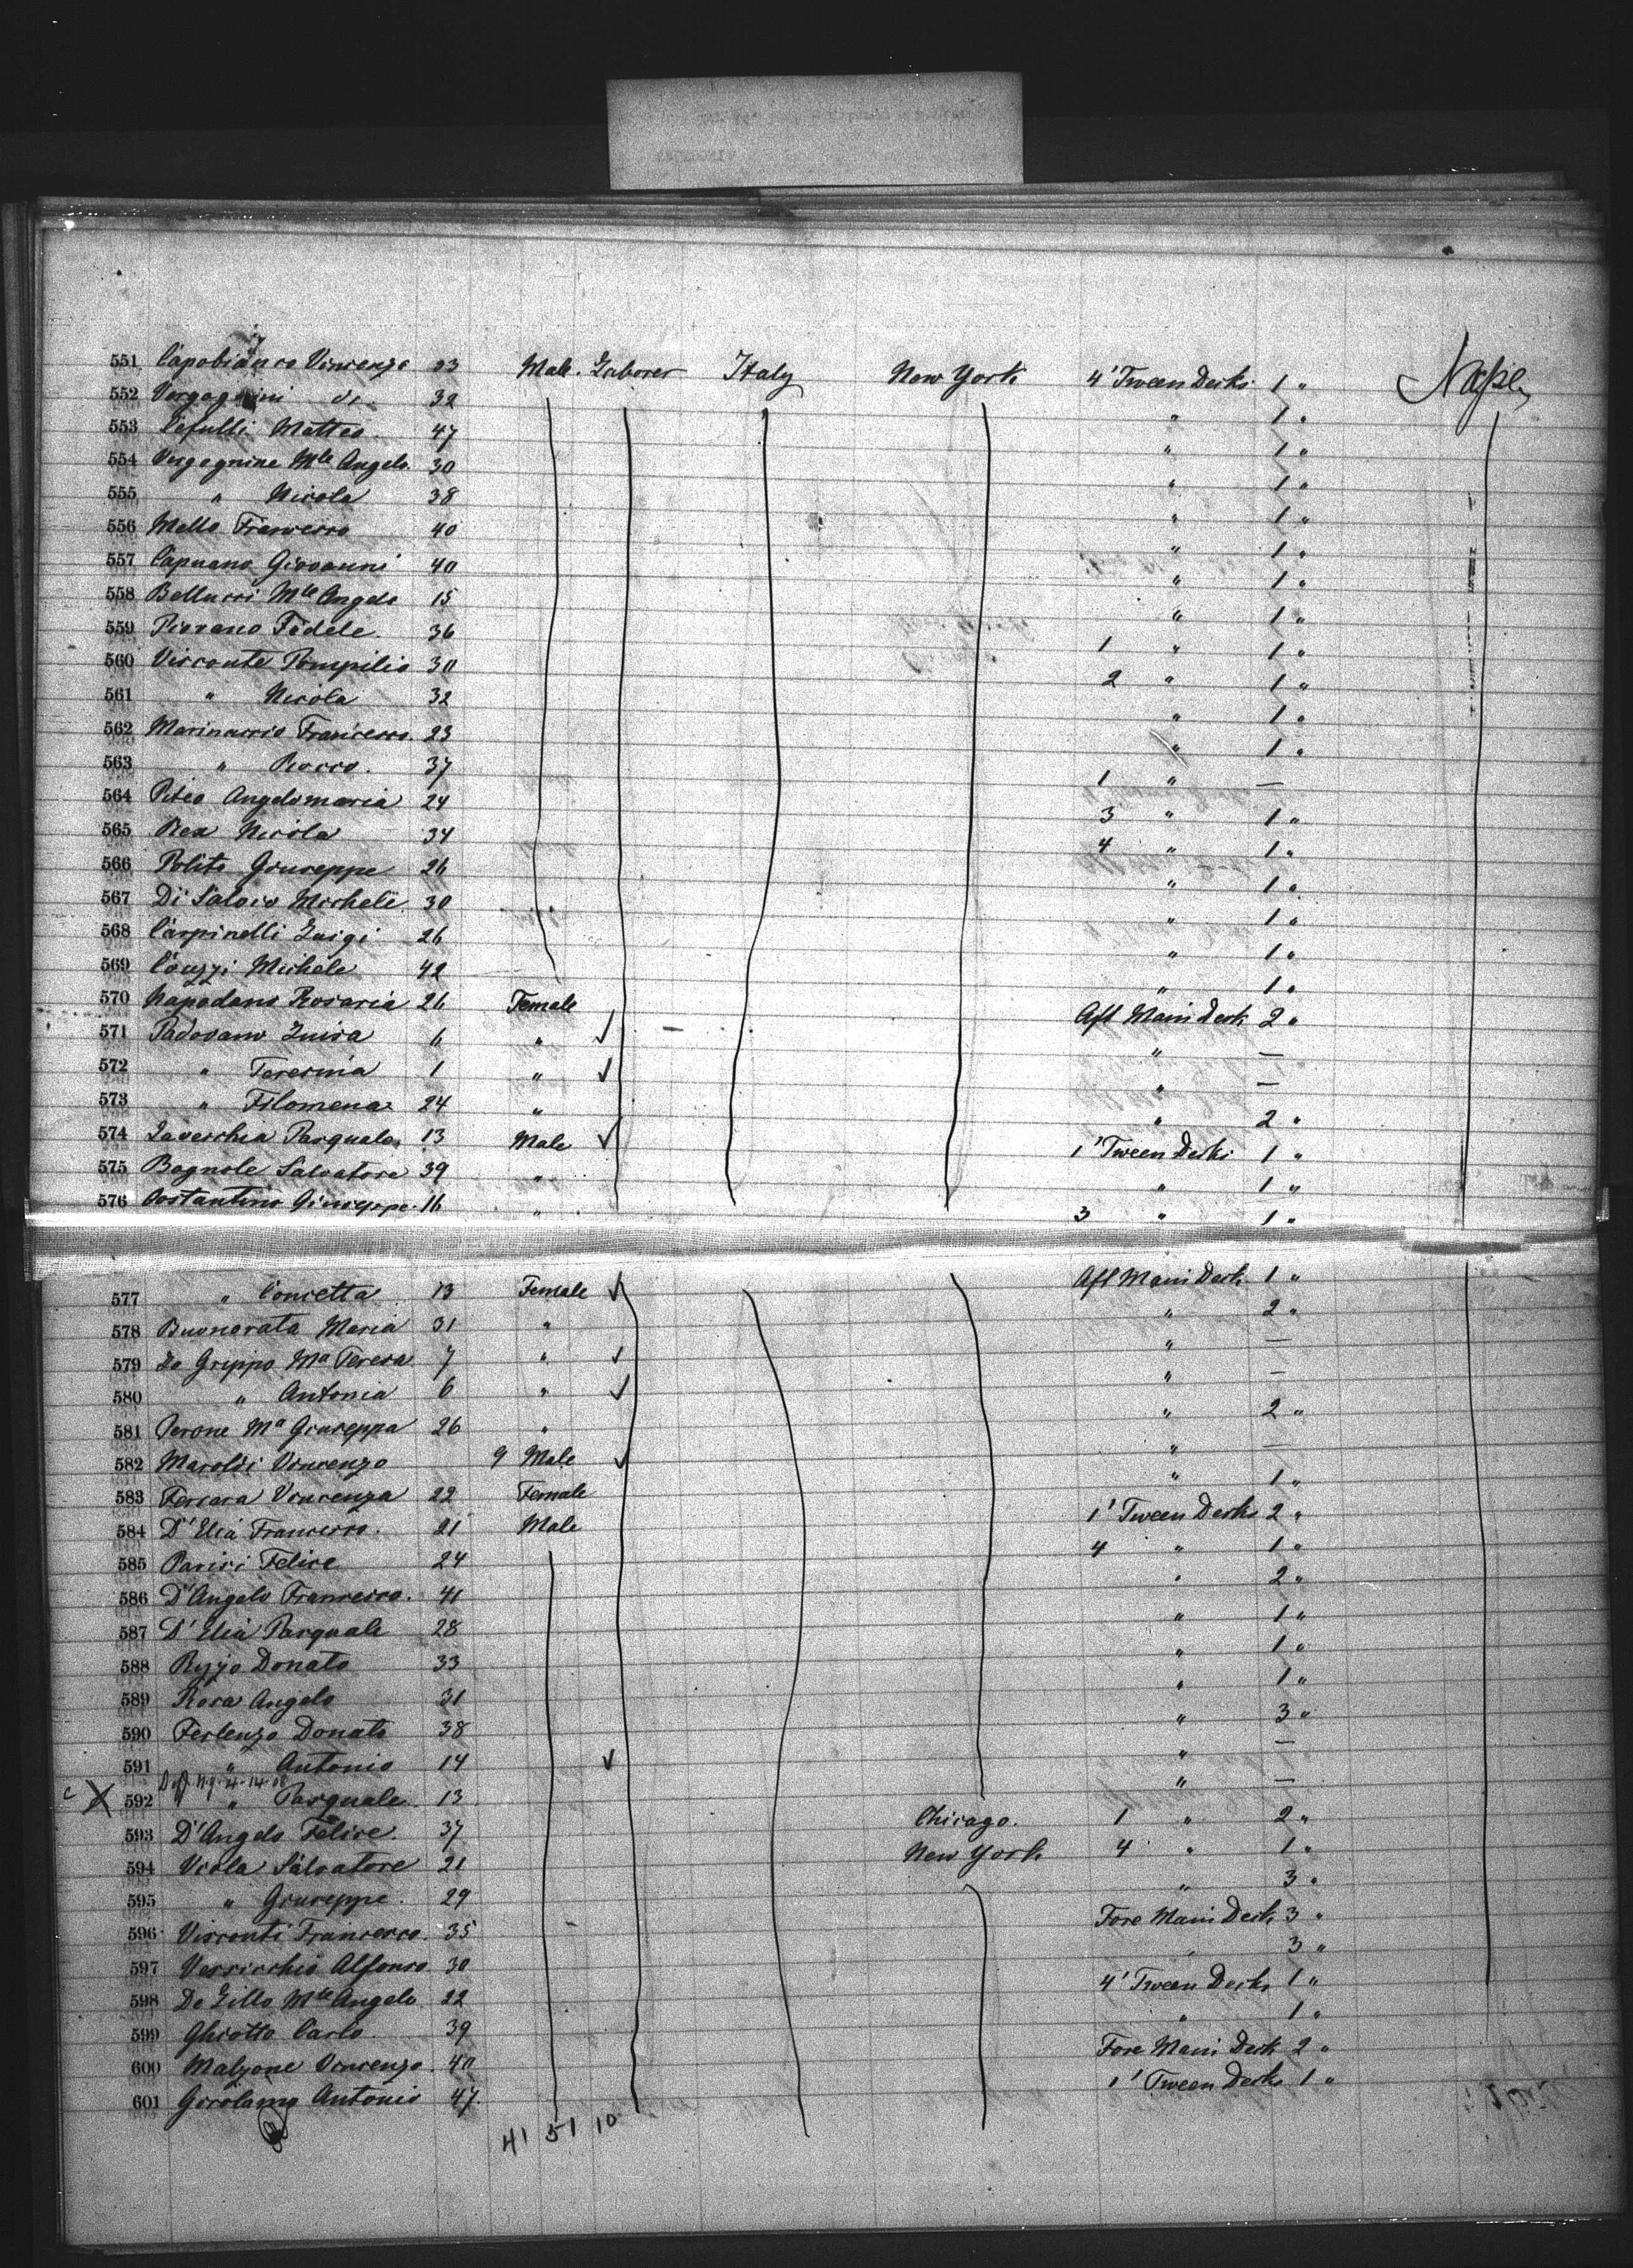 551 Capobianco Vincenzo 23 Male. Laborer Italy New York 4' Tween Decks 1 " Naples
552 Vergagnini do. 32 " 1 "
553 Cefulli Matteo. 47 " 1 "
554 Vergagnine Mle Angelo. 30 " 1 "
555 " Nicola 38 " 1 "
556 Mello Francesco 40 " 1 "
557 Capuano Giovanni 40 " 1 "
558 Bellucci Mle Angelo 15 " 1 "
559 Piovano Fedele. 36 1 " 1 "
560 Visconte Pompilio 30 2 " 1 "
561 " Nicola 32 " 1 "
562 Marinaccio Francesco. 23 " 1 "
563 " Rocco. 37 1 " —
564 Piteo Angelomaria 24 3 " 1 "
565 Rea Nicola 34 4 " 1 "
566 Polito Giuseppe 26 " 1 "
567 Di Salvio Michele 30 " 1 "
568 Carpinelli Luigi 26 " 1 "
569 Couzzi Michele 42 " 1 "
570 Napodano Rosaria 26 Female Aft Main Deck 2 "
571 Padovano Luisa 6 " ✓ " —
572 " Teresina 1 " ✓ " —
573 " Filomena 24 " " 2 "
574 Lavecchia Pasquale 13 Male ✓ 1' Tween Decks 1 "
575 Bagnole Salvatore 39 " " 1 "
576 Costantino Giuseppe. 16 " 3 " 1 "
577 " Concetta 13 Female ✓ Aft Main Deck. 1 "
578 Buonorata Maria 31 " " 2 "
579 Lo Grippo Ma Teresa 7 " ✓ " —
580 " Antonia 6 " ✓ " —
581 Perone Ma Giuseppa 26 " " 2 "
582 Maroldi Vincenzo 9 Male ✓ " —
583 Ferrara Vincenza 22 Female " 1 "
584 D'Elia Francesco. 21 Male 1' Tween Decks 2 "
585 Parisi Felice 24 4 " 1 "
586 D'Angelo Francesco. 41 " 2 "
587 D'Elia Pasquale 28 " 1 "
588 Ryzo Donato 33 " 1 "
589 Rosa Angelo 31 " 1 "
590 Ferlenzo Donato 38 " 3 "
591 " Antonio 14 ✓ " —
c X 592 " Pasquale. 13 " —
593 D'Angelo Felice. 37 Chicago. 1 " 2 "
594 Viola Salvatore 21 New York 4 " 1 "
595 " Giuseppe. 29 " 3 "
596 Visconti Francesco. 35 Fore Main Deck 3 "
597 Verricchio Alfonso 30 " 3 "
598 De Lillo Mle Angelo 22 4' Tween Decks 1 "
599 Ghiotto Carlo. 39 " 1 "
600 Malzone Vincenzo. 40 Fore Main Deck 2 "
601 Girolamo Antonio 47. 1' Tween Decks 1 "
41 51 10